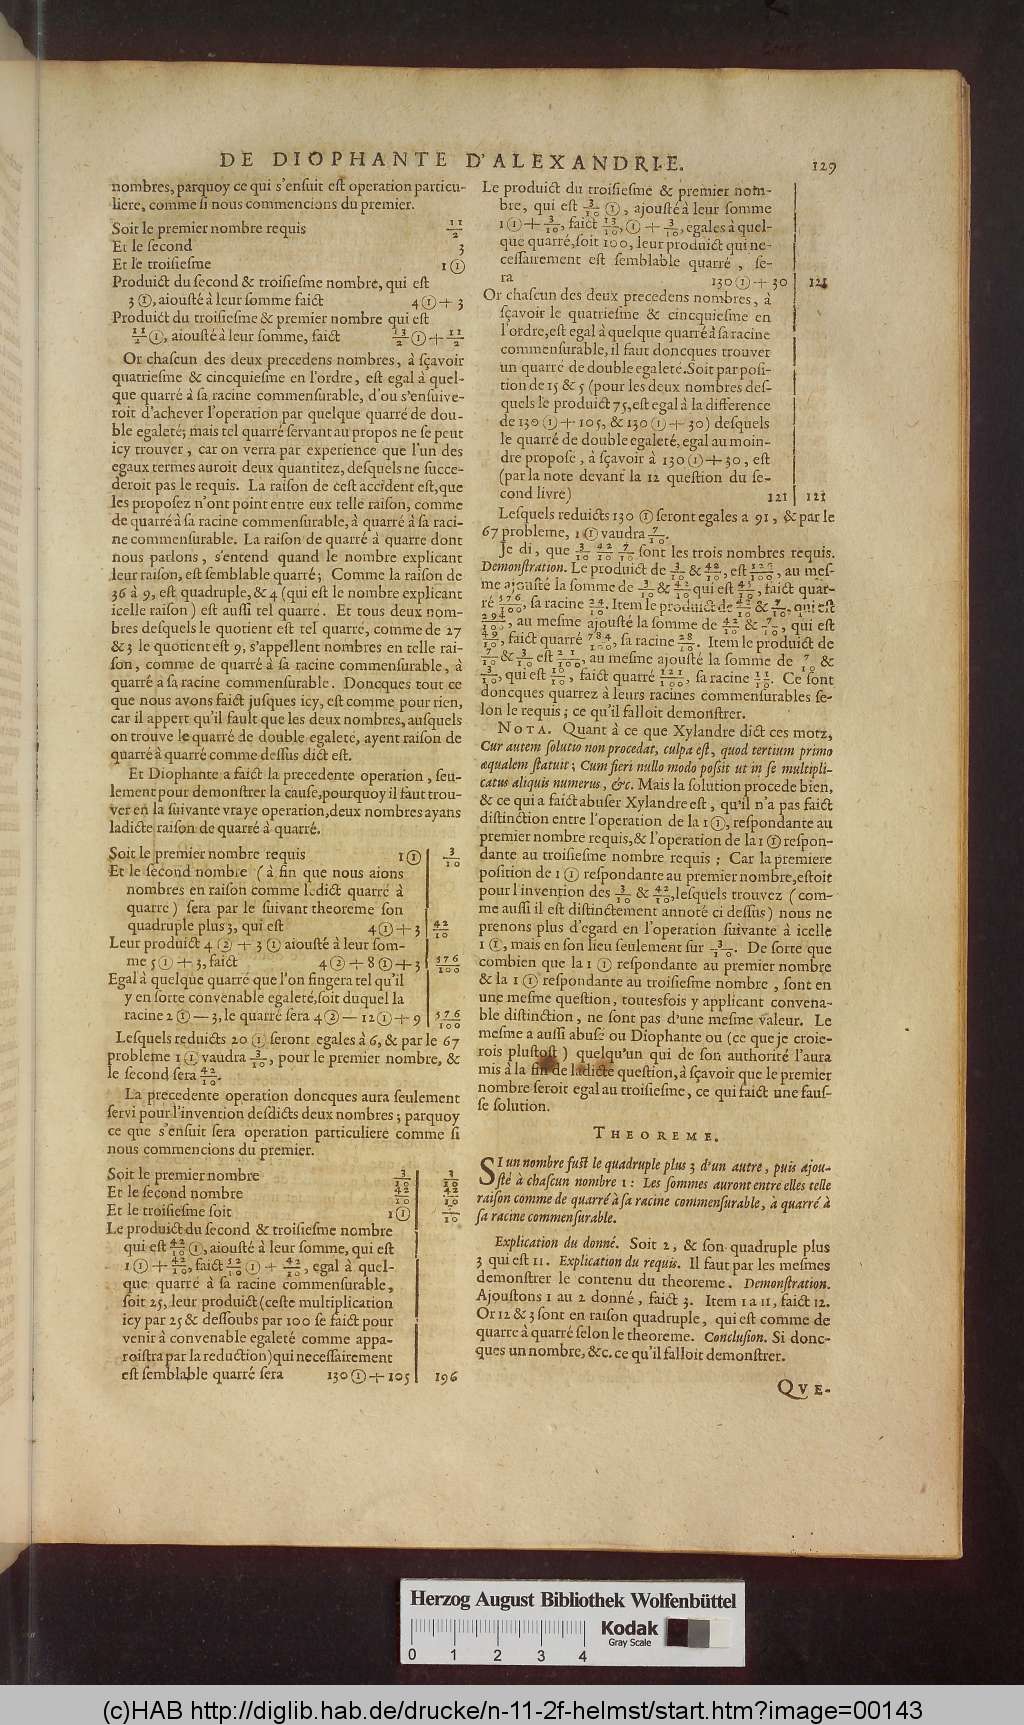 DE DIOPHANTE D'ALEXANDRIE. 129
nombres, parquoy ce qui s'enſuit eſt operation particu-
liere, comme ſi nous commencions du premier.
Soit le premier nombre requis 11/2
Et le ſecond 3
Et le troiſieſme 1①
Produict du ſecond & troiſieſme nombre, qui eſt
3①, aiouſté à leur ſomme faict 4①+3
Produict du troiſieſme & premier nombre qui eſt
11/2①, aiouſté à leur ſomme, faict 13/2①+11/2
Or chaſcun des deux precedens nombres, à ſçavoir
quatrieſme & cincquieſme en l'ordre, eſt egal à quel-
que quarré à ſa racine commenſurable, d'ou s'enſuive-
roit d'achever l'operation par quelque quarré de dou-
ble egaleté; mais tel quarré ſervant au propos ne ſe peut
icy trouver, car on verra par experience que l'un des
egaux termes auroit deux quantitez, deſquels ne ſucce-
deroit pas le requis. La raiſon de ceſt accident eſt, que
les propoſez n'ont point entre eux telle raiſon, comme
de quarré à ſa racine commenſurable, à quarré à ſa raci-
ne commenſurable. La raiſon de quarré à quarre dont
nous parlons, s'entend quand le nombre explicant
leur raiſon, eſt ſemblable quarré; Comme la raiſon de
36 à 9, eſt quadruple, & 4 (qui eſt le nombre explicant
icelle raiſon) eſt auſſi tel quarré. Et tous deux nom-
bres deſquels le quotient eſt tel quarré, comme de 27
& 3 le quotient eſt 9, s'appellent nombres en telle rai-
ſon, comme de quarré à ſa racine commenſurable, à
quarré a ſa racine commenſurable. Doncques tout ce
que nous avons faict juſques icy, eſt comme pour rien,
car il appert qu'il fault que les deux nombres, auſquels
on trouve le quarré de double egaleté, ayent raiſon de
quarré à quarré comme deſſus dict eſt.
Et Diophante a faict la precedente operation, ſeu-
lement pour demonſtrer la cauſe, pourquoy il faut trou-
ver en la ſuivante vraye operation, deux nombres ayans
ladicte raiſon de quarré à quarré.
Soit le premier nombre requis 1① 3/10
Et le ſecond nombre (à fin que nous aions
nombres en raiſon comme ledict quarré à
quarre) ſera par le ſuivant theoreme ſon
quadruple plus 3, qui eſt 4①+3 42/10
Leur produict 4②+3① aiouſté à leur ſom-
me 5①+3, faict 4②+8①+3 576/100
Egal à quelque quarré que l'on fingera tel qu'il
y en ſorte convenable egaleté, ſoit duquel la
racine 2①—3, le quarré ſera 4②—12①+9 576/100
Leſquels reduicts 20① ſeront egales à 6, & par le 67
probleme 1① vaudra 3/10, pour le premier nombre, &
le ſecond ſera 42/10.
La precedente operation doncques aura ſeulement
ſervi pour l'invention deſdicts deux nombres; parquoy
ce que s'enſuit ſera operation particuliere comme ſi
nous commencions du premier.
Soit le premier nombre 3/10 3/10
Et le ſecond nombre 42/10 42/10
Et le troiſieſme ſoit 1① 7/10
Le produict du ſecond & troiſieſme nombre
qui eſt 42/10①, aiouſté à leur ſomme, qui eſt
1①+42/10, faict 52/10①+42/10, egal à quel-
que quarré à ſa racine commenſurable,
ſoit 25, leur produict (ceſte multiplication
icy par 25 & deſſoubs par 100 ſe faict pour
venir à convenable egaleté comme appa-
roiſtra par la reduction) qui neceſſairement
eſt ſemblable quarré ſera 130①+105 196
Le produict du troiſieſme & premier nom-
bre, qui eſt 3/10①, ajouſté à leur ſomme
1①+3/10, faict 13/10①+3/10, egales à quel-
que quarré, ſoit 100, leur produict qui ne-
ceſſairement eſt ſemblable quarré, ſe-
ra 130①+30 121
Or chaſcun des deux precedens nombres, à
ſçavoir le quatrieſme & cincquieſme en
l'ordre, eſt egal à quelque quarré à ſa racine
commenſurable, il faut doncques trouver
un quarré de double egaleté. Soit par poſi-
tion de 15 & 5 (pour les deux nombres deſ-
quels le produict 75, eſt egal à la difference
de 130①+105, & 130①+30) deſquels
le quarré de double egaleté, egal au moin-
dre propoſe, à ſçavoir à 130①+30, eſt
(par la note devant la 12 queſtion du ſe-
cond livre) 121 121
Leſquels reduicts 130① ſeront egales a 91, & par le
67 probleme, 1① vaudra 7/10.
Je di, que 3/10 42/10 7/10 ſont les trois nombres requis.
Demonſtration. Le produict de 3/10 & 42/10, eſt 126/100, au meſ-
me ajouſté la ſomme de 3/10 & 42/10 qui eſt 45/10, faict quar-
ré 576/100, ſa racine 24/10. Item le produict de 42/10 & 7/10, qui eſt
294/100, au meſme ajouſté la ſomme de 42/10 & 7/10, qui eſt
49/10, faict quarré 784/100, ſa racine 28/10. Item le produict de
7/10 & 3/10 eſt 21/100, au meſme ajouſté la ſomme de 7/10 &
3/10, qui eſt 10/10, faict quarré 121/100, ſa racine 11/10. Ce ſont
doncques quarrez à leurs racines commenſurables ſe-
lon le requis; ce qu'il falloit demonſtrer.
NOTA. Quant à ce que Xylandre dict ces motz,
Cur autem ſolutio non procedat, culpa eſt, quod tertium primo
æqualem ſtatuit; Cum fieri nullo modo poſſit ut in ſe multipli-
catus aliquis numerus, &c. Mais la ſolution procede bien,
& ce qui a faict abuſer Xylandre eſt, qu'il n'a pas faict
diſtinction entre l'operation de la 1①, reſpondante au
premier nombre requis, & l'operation de la 1① reſpon-
dante au troiſieſme nombre requis; Car la premiere
poſition de 1① reſpondante au premier nombre, eſtoit
pour l'invention des 3/10 & 42/10, leſquels trouvez (com-
me auſſi il eſt diſtinctement annoté ci deſſus) nous ne
prenons plus d'egard en l'operation ſuivante à icelle
1①, mais en ſon lieu ſeulement ſur 3/10. De ſorte que
combien que la 1① reſpondante au premier nombre
& la 1① reſpondante au troiſieſme nombre, ſont en
une meſme queſtion, toutesfois y applicant convena-
ble diſtinction, ne ſont pas d'une meſme valeur. Le
meſme a auſſi abuſé ou Diophante ou (ce que je croie-
rois pluſtoſt) quelqu'un qui de ſon authorité l'aura
mis à la fin de ladicte queſtion, à ſçavoir que le premier
nombre ſeroit egal au troiſieſme, ce qui faict une fauſ-
ſe ſolution.
THEOREME.
SI un nombre fuſt le quadruple plus 3 d'un autre, puis ajou-
ſté à chaſcun nombre 1: Les ſommes auront entre elles telle
raiſon comme de quarré à ſa racine commenſurable, à quarré à
ſa racine commenſurable.
Explication du donné. Soit 2, & ſon quadruple plus
3 qui eſt 11. Explication du requis. Il faut par les meſmes
demonſtrer le contenu du theoreme. Demonſtration.
Ajouſtons 1 au 2 donné, faict 3. Item 1 a 11, faict 12.
Or 12 & 3 ſont en raiſon quadruple, qui eſt comme de
quarre à quarré ſelon le theoreme. Concluſion. Si donc-
ques un nombre, &c. ce qu'il falloit demonſtrer.
QVE-
Herzog August Bibliothek Wolfenbüttel
Kodak
Gray Scale
0 1 2 3 4
(c)HAB http://diglib.hab.de/drucke/n-11-2f-helmst/start.htm?image=00143